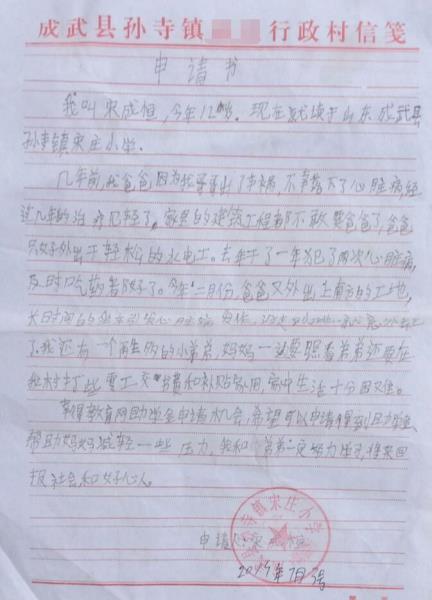 成武县孙寺镇 行政村信笺
申请书
我叫宋成恒,今年12岁。现在就读于山东成武县
孙寺镇宋庄小学。
几年前,我爸爸因为我爷爷出了事祸,不幸落下了心脏病,经
过几年的治疗已轻了。家里的建筑工程都不敢要爸爸了,爸爸
只好外出干轻松的水电工。去年干了一年犯了两次心脏病,
及时吃药都好了。今年二月份,爸爸又外出上南方的工地,
长时间的坐车引发心脏病
了。我还有一个两生的小弟弟,妈妈一边要照看弟弟还要在
我村打些零工交 书费和补贴家用,家中生活十分困难。
教育网助学金申请机会,希望可以申请得到
帮助妈妈减轻一些压力,我和弟弟一定努力学习,将来回
报社会和好心人。
孙寺镇宋庄小学
申请人:宋 恒